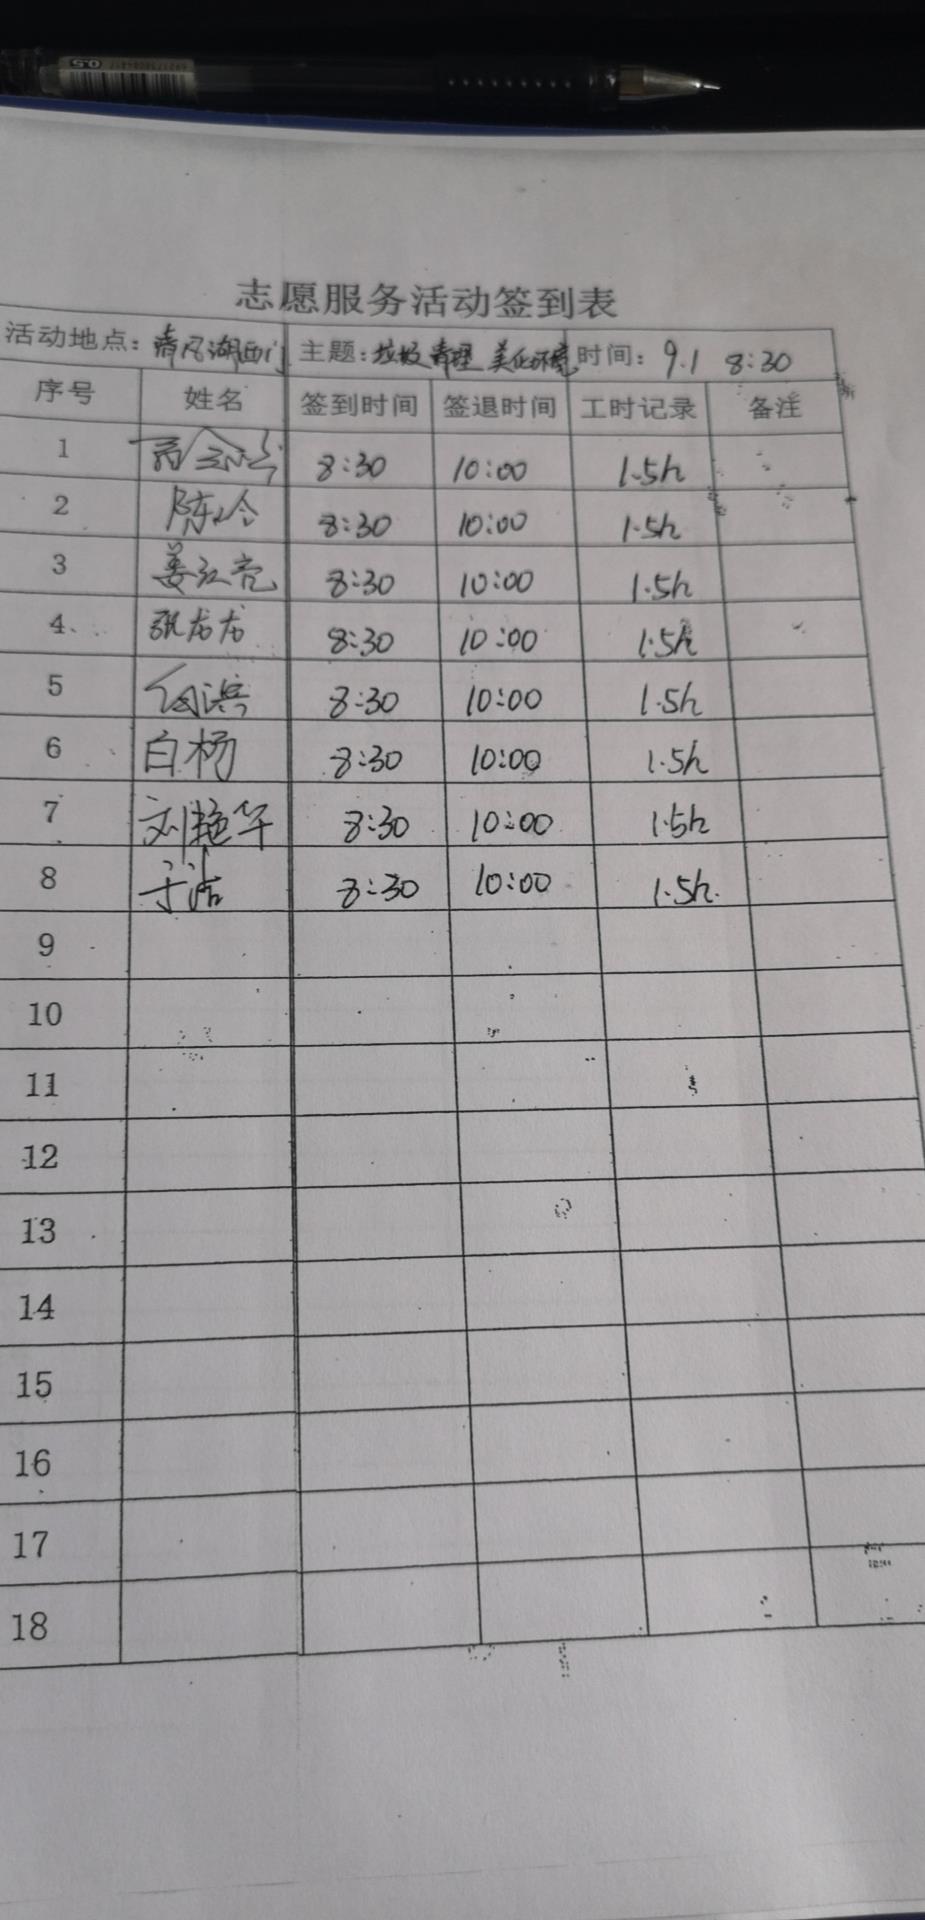 0.5
志愿服务活动签到表
活动地点：清风湖西门 主题：垃圾清理 美化环境 时间：9.1 8:30
序号 姓名 签到时间 签退时间 工时记录 备注
1 8:30 10:00 1.5h
2 陈玲 8:30 10:00 1.5h
3 姜红亮 8:30 10:00 1.5h
4 张龙龙 8:30 10:00 1.5h
5 8:30 10:00 1.5h
6 白杨 8:30 10:00 1.5h
7 刘艳华 8:30 10:00 1.5h
8 于洁 8:30 10:00 1.5h.
9
10
11
12
13
14
15
16
17
18